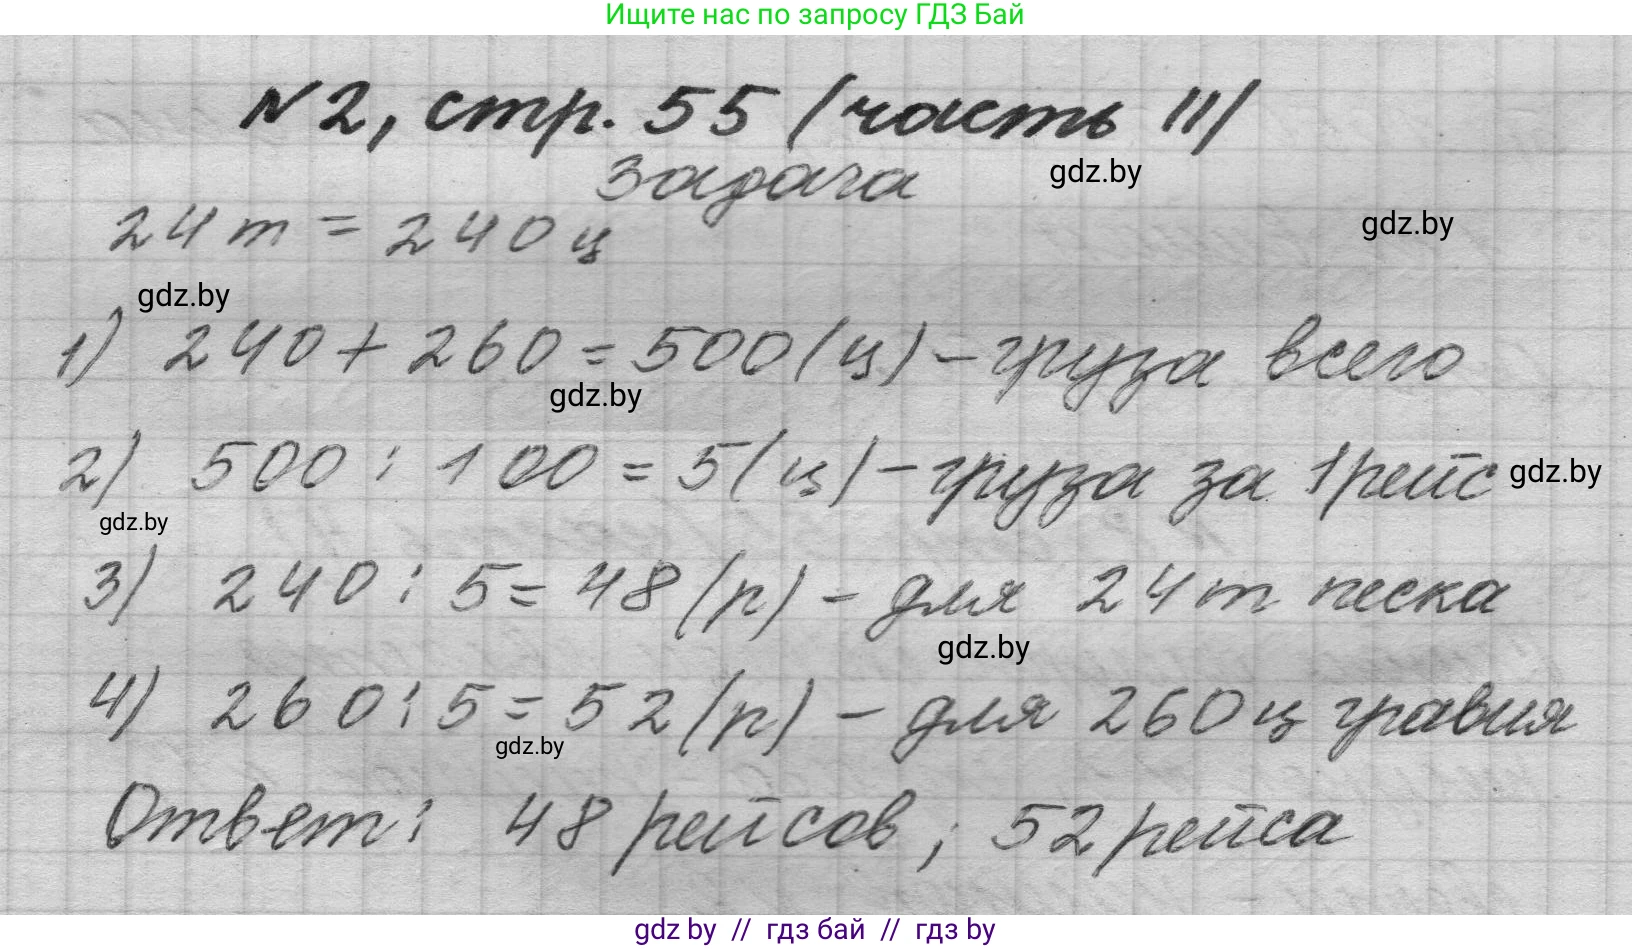 Ищите нас по запросу ГДЗ Бай
№2, стр. 55 (часть II)
Задача
gdz.by
24 т = 240 ц
gdz.by
gdz.by
1) 240 + 260 = 500 (ц) – груза всего
gdz.by
2) 500 : 100 = 5 (ц) – груза за 1 рейс
gdz.by
gdz.by
3) 240 : 5 = 48 (р) – для 24 т песка
gdz.by
4) 260 : 5 = 52 (р) – для 260 ц гравия
gdz.by
Ответ: 48 рейсов; 52 рейса
gdz by // гдз бай // gdz by